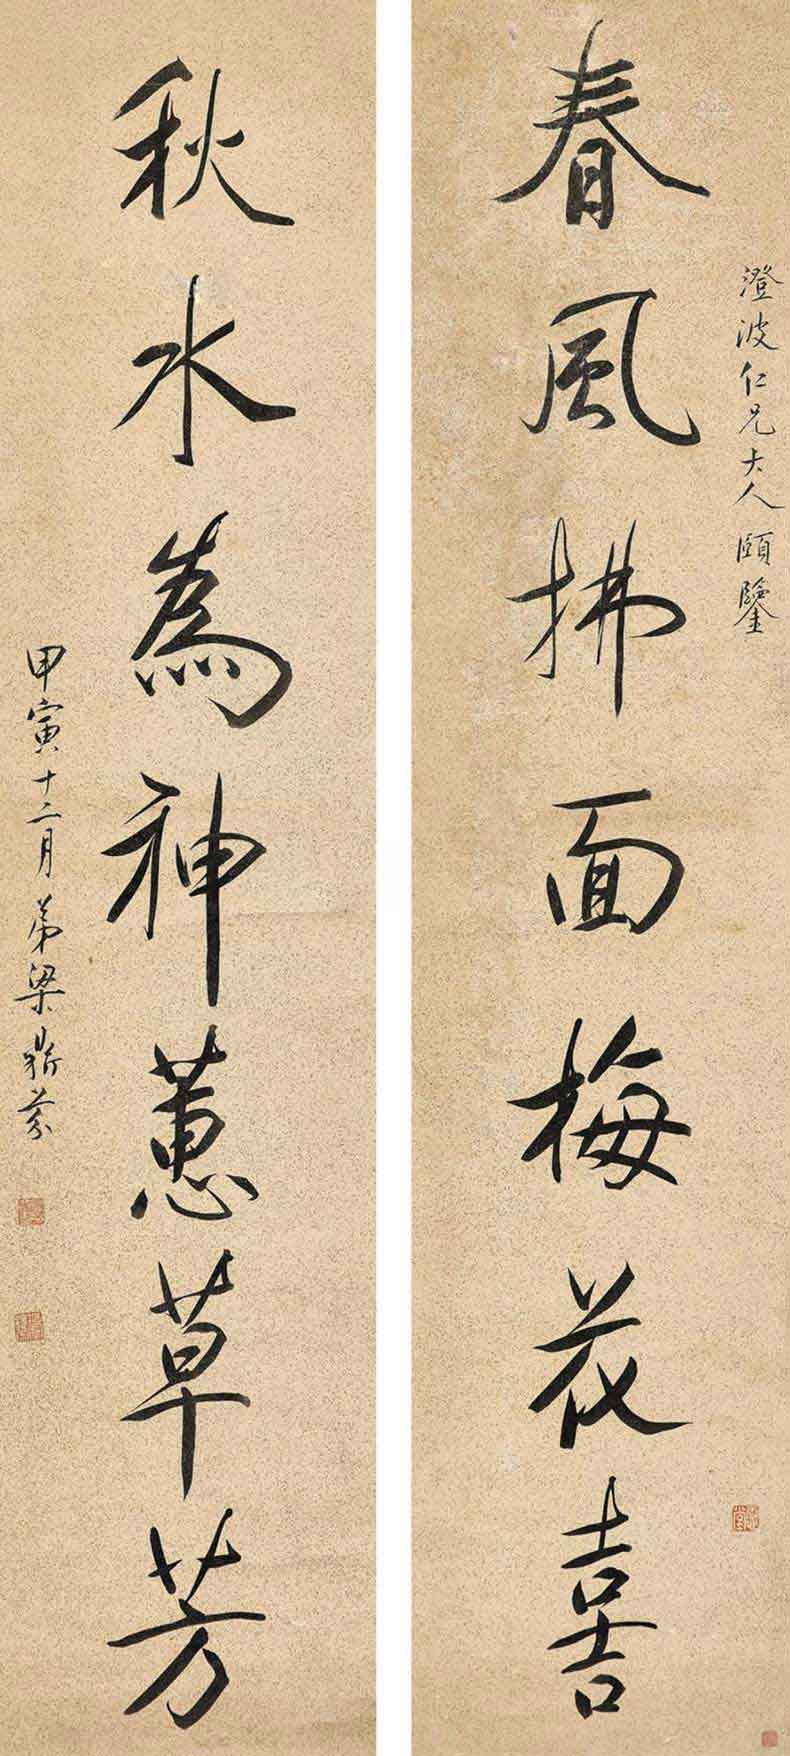 春風拂面梅花喜
澄波仁兄大人頤鑒
秋水為神蕙草芳
甲寅十二月弟梁鼎芬